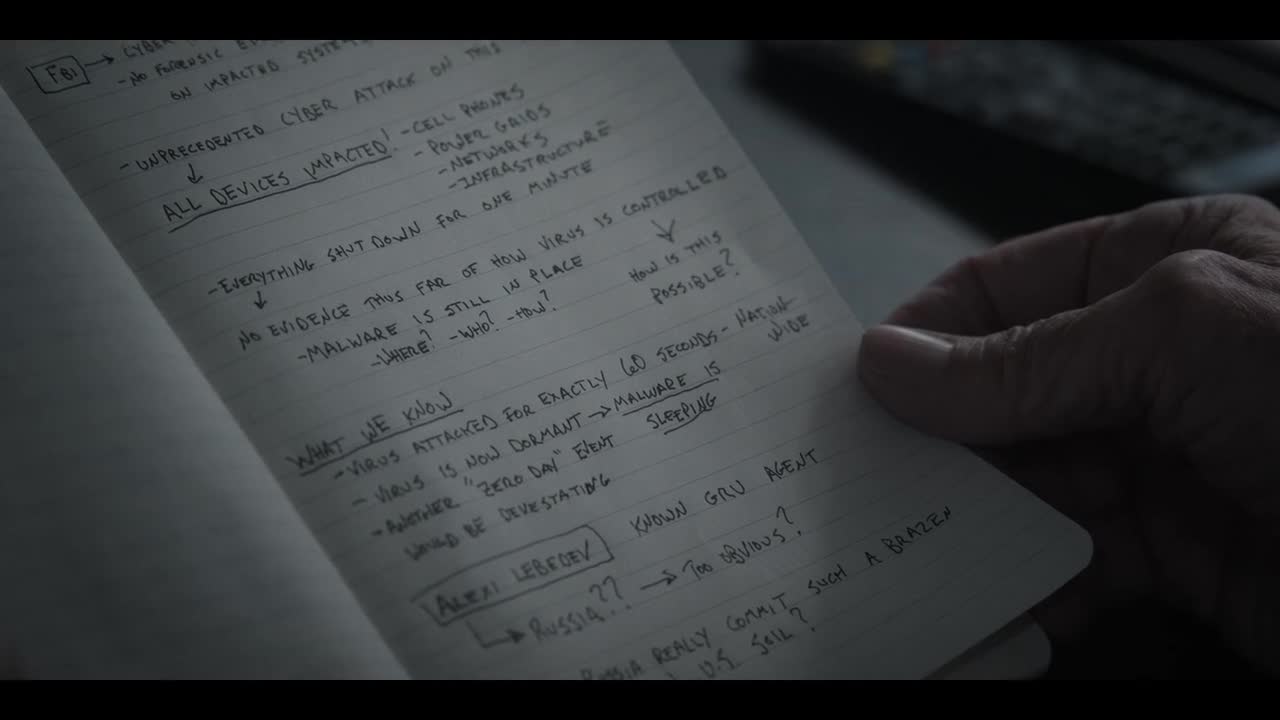 FBI → CYBER
- NO FORENSIC
ON IMPACTED SYSTEMS
- UNPRECEDENTED CYBER ATTACK ON THIS
↓
ALL DEVICES IMPACTED!
- CELL PHONES
- POWER GRIDS
- NETWORKS
- INFRASTRUCTURE
- EVERYTHING SHUT DOWN FOR ONE MINUTE
↓
NO EVIDENCE THUS FAR OF HOW VIRUS IS CONTROLLED
↓
HOW IS THIS
POSSIBLE?
- MALWARE IS STILL IN PLACE
- WHERE? - WHO? - HOW?
WHAT WE KNOW
- VIRUS ATTACKED FOR EXACTLY 60 SECONDS - NATION
WIDE
- VIRUS IS NOW DORMANT → MALWARE IS
SLEEPING
- ANOTHER "ZERO DAY" EVENT
WOULD BE DEVESTATING
ALEXI LEBEDEV KNOWN GRU AGENT
↳ RUSSIA?? → TOO OBVIOUS?
RUSSIA REALLY COMMIT SUCH A BRAZEN
U.S. SOIL?